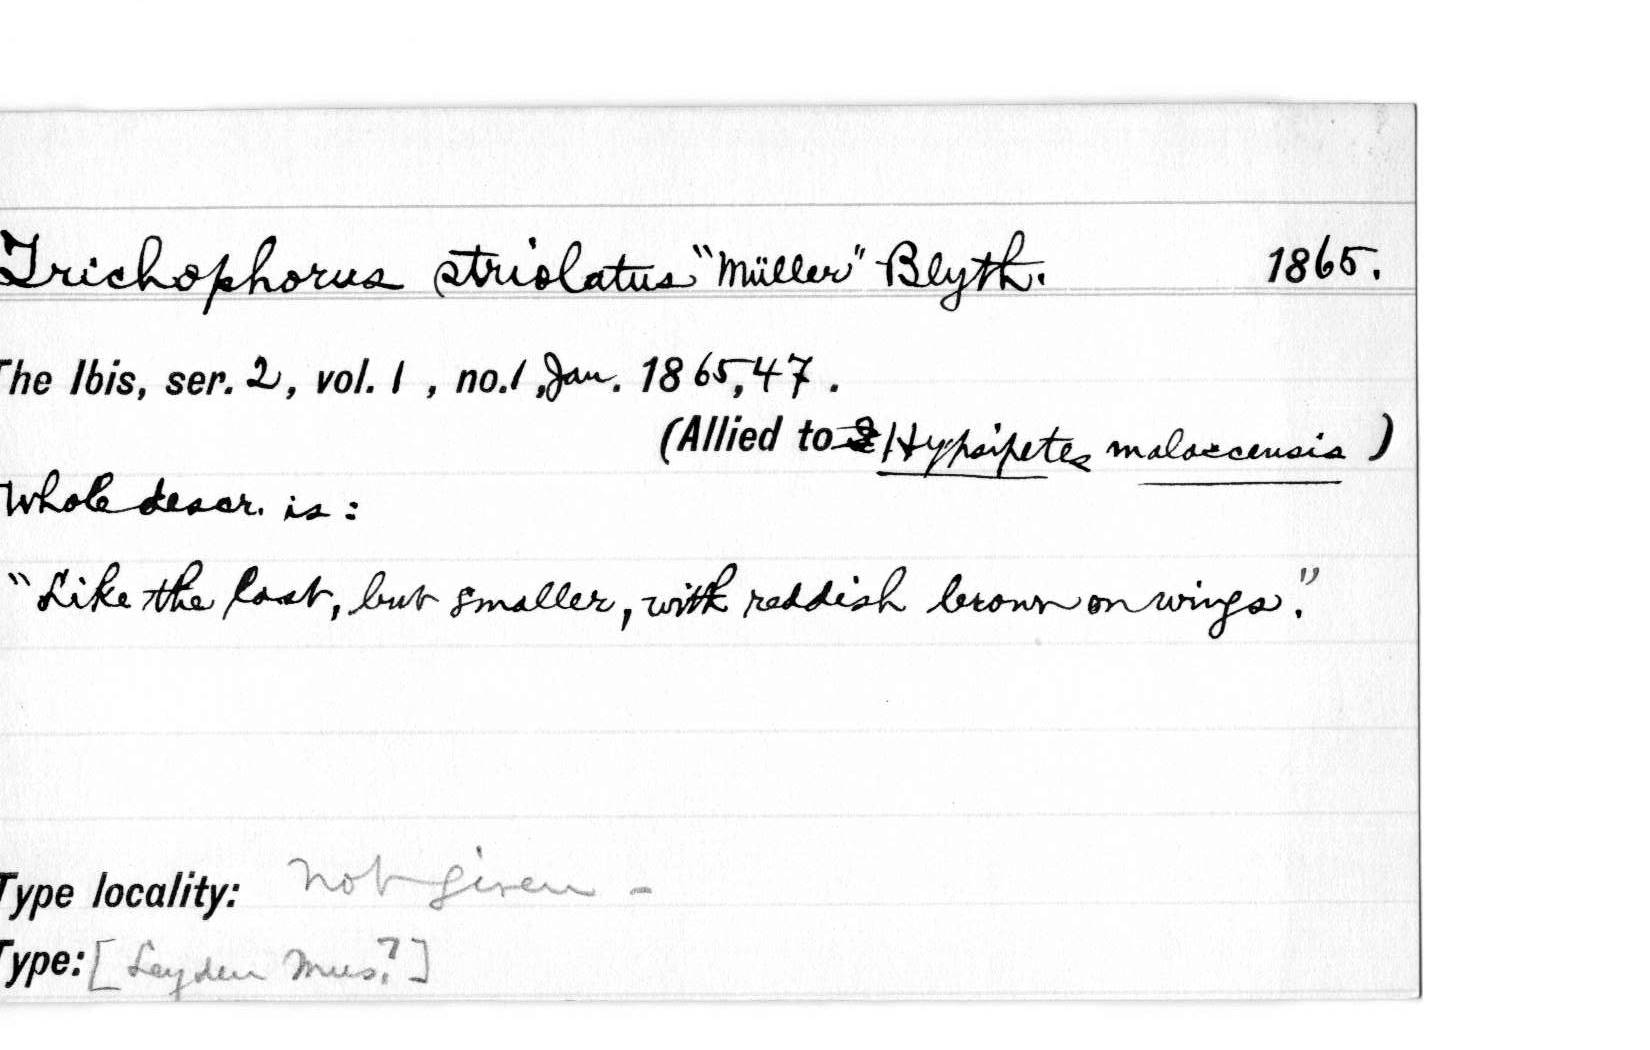 Trichophorus striolatus "Müller" Blyth. 1865.
The Ibis, ser. 2, vol. 1, no. 1, Jan. 1865, 47.
(Allied to Hypsipetes malaccensis)
Whole descr. is:
"Like the last, but smaller, with reddish brown on wings."
Type locality: not given -
Type: [Leyden Mus.?]